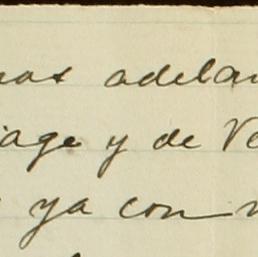 nos adelan
iage y de Ve
ya con